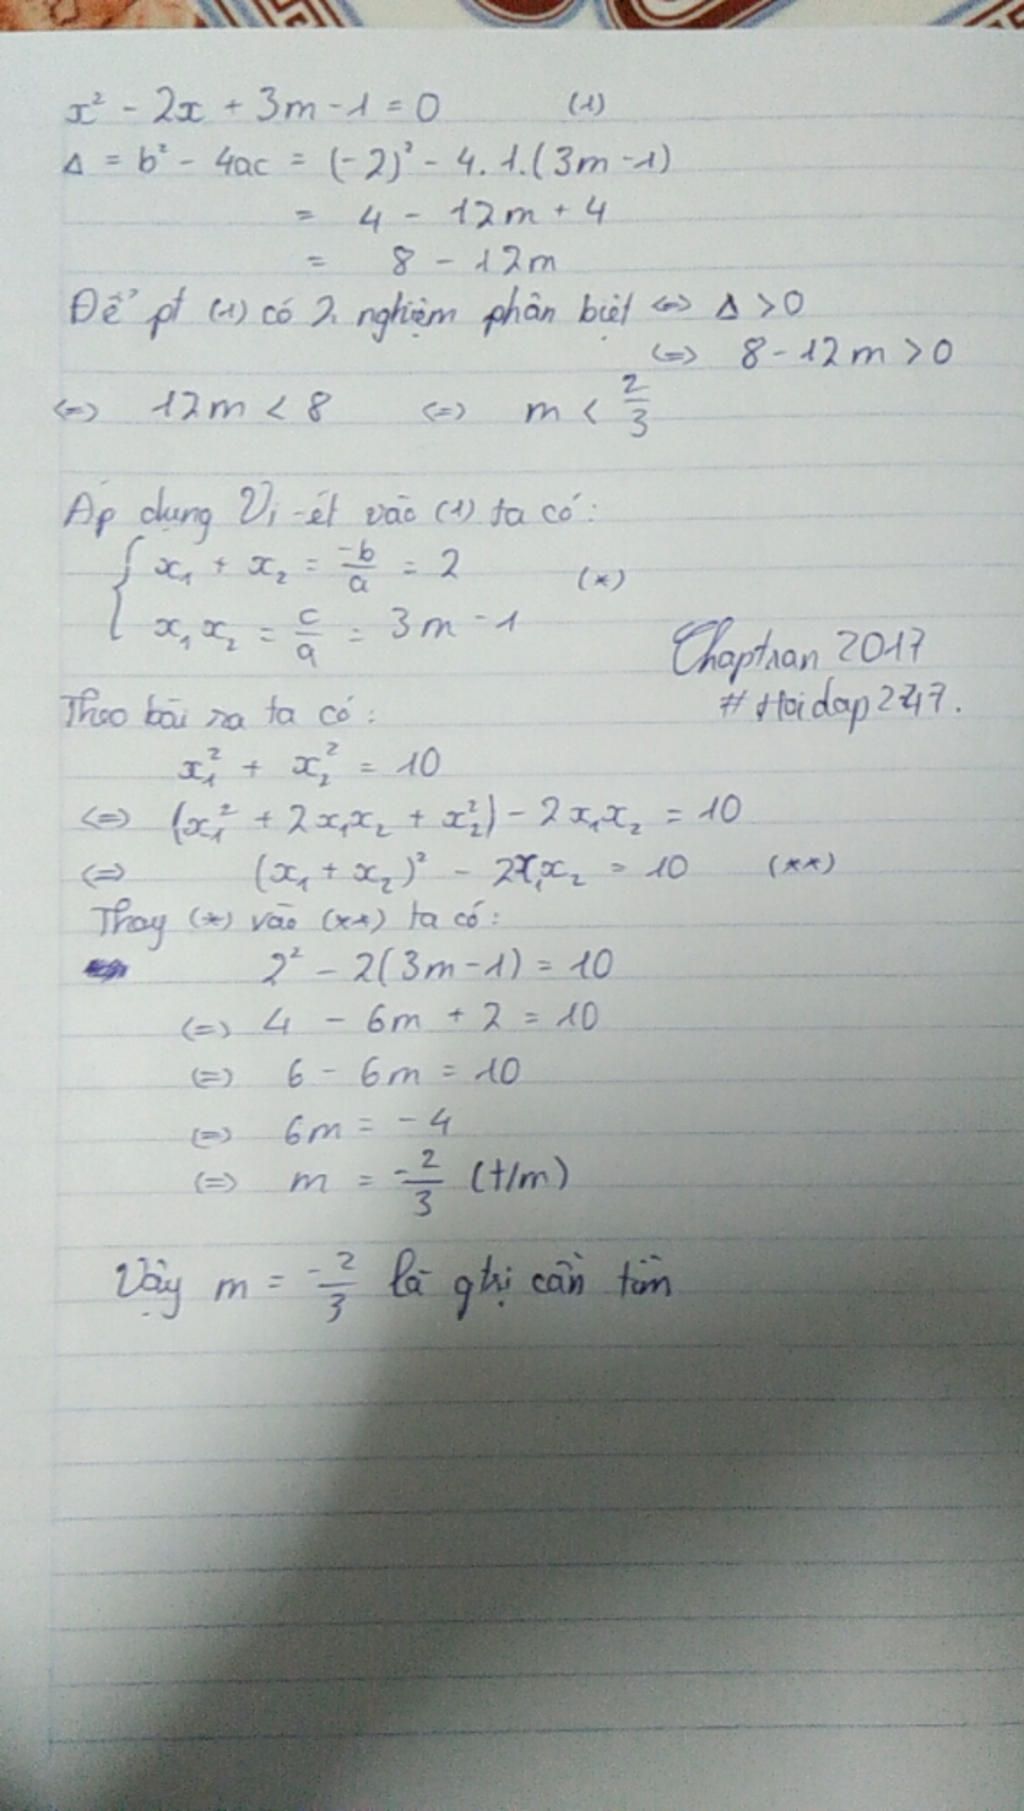 x² - 2x + 3m - 1 = 0 (1)
Δ = b² - 4ac = (-2)² - 4.1.(3m - 1)
= 4 - 12m + 4
= 8 - 12m
Để pt (1) có 2 nghiệm phân biệt <=> Δ > 0
<=> 8 - 12m > 0
<=> 12m < 8 <=> m < 2/3
Áp dụng Vi-ét vào (1) ta có:
{ x₁ + x₂ = -b/a = 2 (*)
x₁x₂ = c/a = 3m - 1
Chaptran 2017
#Hoidap247.
Theo bài ra ta có:
x₁² + x₂² = 10
<=> (x₁² + 2x₁x₂ + x₂²) - 2x₁x₂ = 10
<=> (x₁ + x₂)² - 2x₁x₂ = 10 (**)
Thay (*) vào (**) ta có:
2² - 2(3m - 1) = 10
<=> 4 - 6m + 2 = 10
<=> 6 - 6m = 10
<=> 6m = -4
<=> m = -2/3 (t/m)
Vậy m = -2/3 là gtrị cần tìm